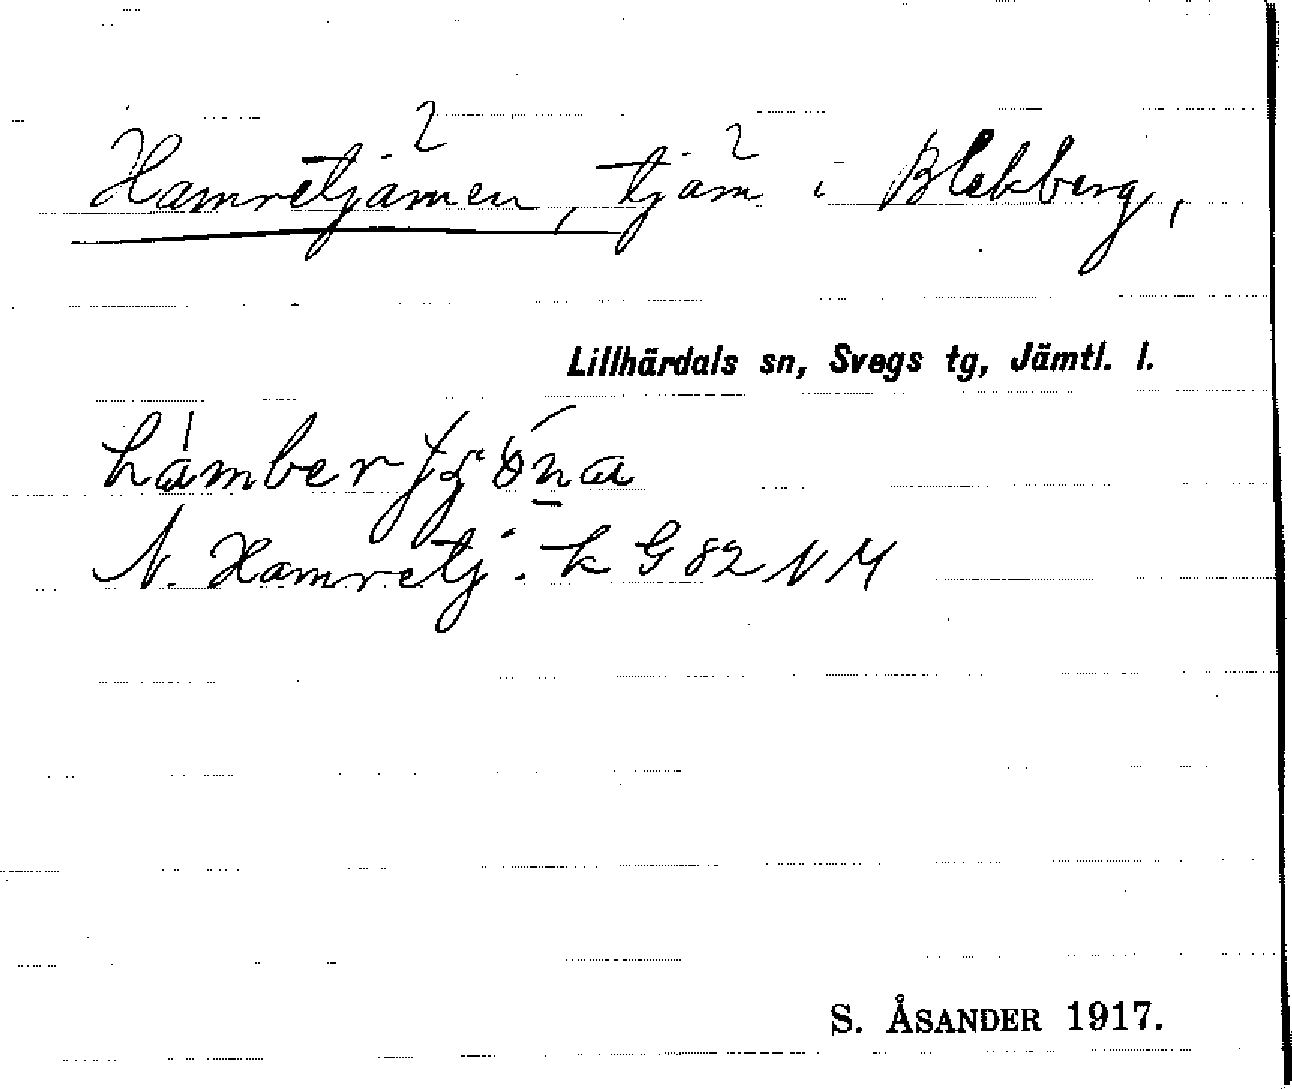 Hamretjärnen, tjärn i Blekberg,
Lillhärdals sn, Svegs tg, Jämtl. l.
N. Hamretj. k G 82 NM
S. ÅSANDER 1917.